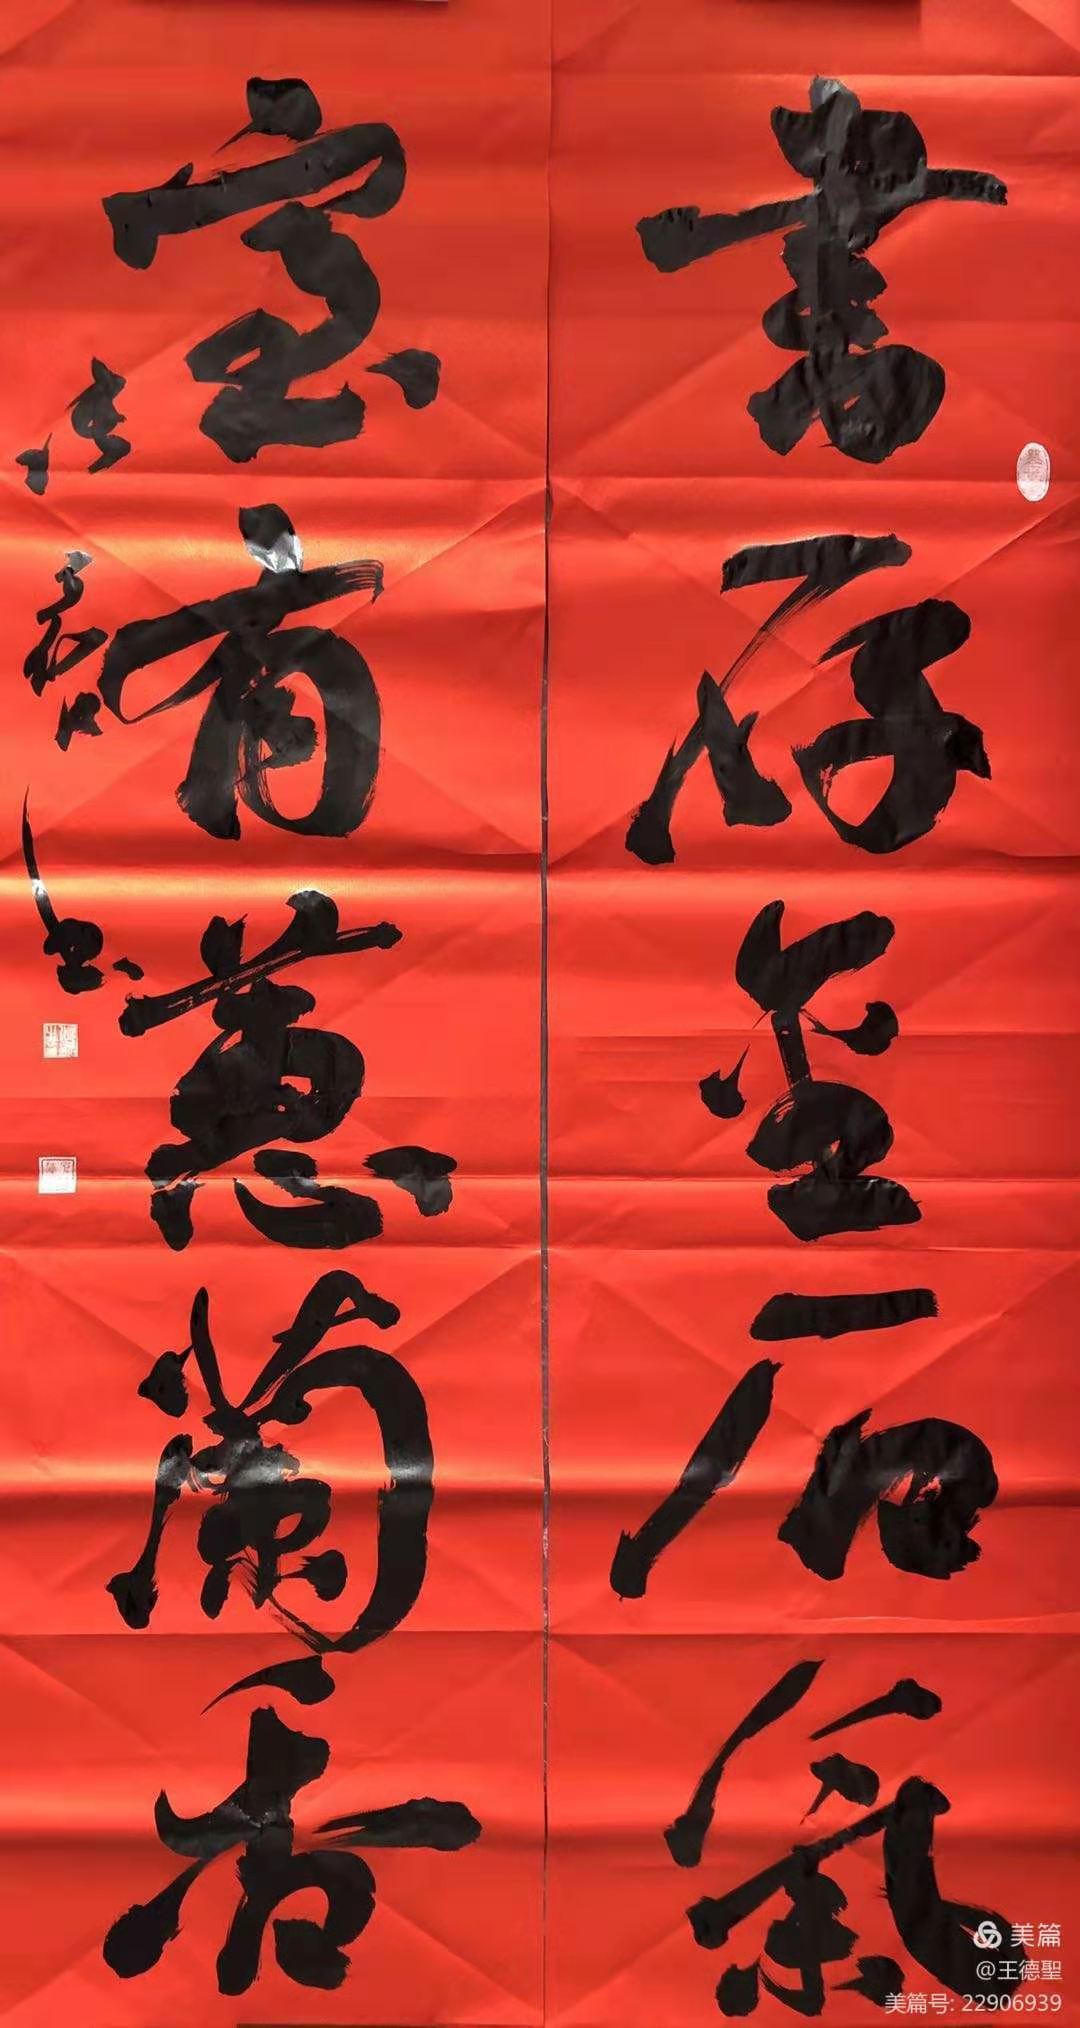 書存金石氣
室有蕙蘭香
美篇
@王德聖
美篇号: 22906939